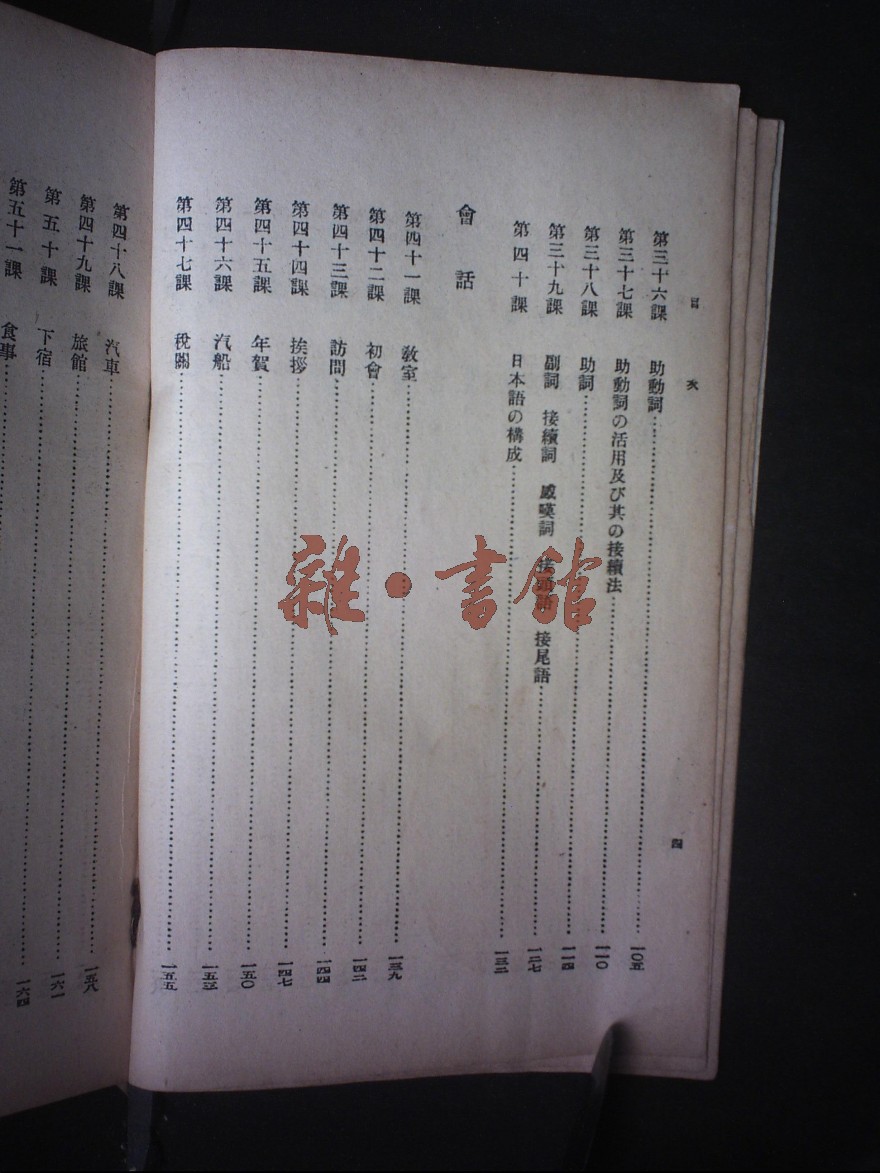 目次
第三十六課　助動詞……一〇五
第三十七課　助動詞の活用及び其の接續法……一一〇
第三十八課　助詞……一一四
第三十九課　副詞　接續詞　感嘆詞　接頭語　接尾語……一二七
第四十課　日本語の構成……一三二
會話
第四十一課　敎室……一三九
第四十二課　初會……一四二
第四十三課　訪問……一四四
第四十四課　挨拶……一四七
第四十五課　年賀……一五〇
第四十六課　汽船……一五三
第四十七課　稅關……一五五
四
第四十八課　汽車……一五八
第四十九課　旅館……一六一
第五十課　下宿……一六四
第五十一課　食事……
雜·書館